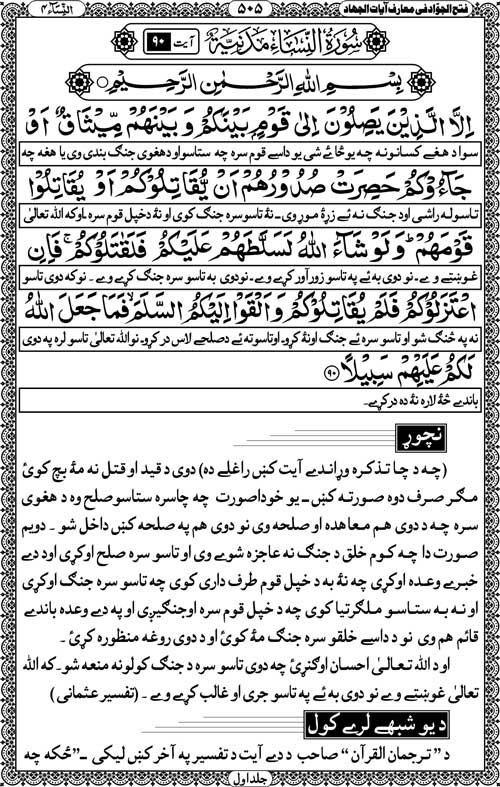 فتح الجوّاد فی معارف آیات الجهاد ۵۰۵ النّساۗء۴
سُوۡرَۃُ النِّسَاۗءِ مَدَنِیَّۃٌ آیت ۹۰
بِسْمِ اللهِ الرَّحْمٰنِ الرَّحِيْمِ
اِلَّا الَّذِيْنَ يَصِلُوْنَ اِلٰى قَوْمٍۭ بَيْنَكُمْ وَ بَيْنَهُمْ مِّيْثَاقٌ اَوْ
سوا د هغے کسانو نه چه یو ځائے شی یو داسے قوم سره چه ستاسو او د هغوی جنګ بندی وی یا هغه چه
جَاۗءُوْكُمْ حَصِرَتْ صُدُوْرُهُمْ اَنْ يُّقَاتِلُوْكُمْ اَوْ يُقَاتِلُوْا
تاسو له راشی او د جنګ نه ئے زړهٔ موړ وی ــ نهٔ تاسو سره جنګ کوی او نهٔ د خپل قوم سره ـ او که الله تعالیٰ
قَوْمَهُمْ ۭ وَلَوْ شَاۗءَ اللهُ لَسَلَّطَهُمْ عَلَيْكُمْ فَلَقٰتَلُوْكُمْ ۚ فَاِنِ
غوښتے وے ـ نو دوی به ئے په تاسو زور آور کړے وے ـ نو دوی به تاسو سره جنګ کړے وے ـ نو که دوی تاسو
اعْتَزَلُوْكُمْ فَلَمْ يُقَاتِلُوْكُمْ وَ اَلْقَوْا اِلَيْكُمُ السَّلَمَ ۙ فَمَا جَعَلَ اللهُ
نه په څنګ شو او تاسو سره ئے جنګ اونهٔ کړو ـ او تاسو ته ئے د صلحے لاس در کړو ـ نو الله تعالیٰ تاسو لره په دوی
لَكُمْ عَلَيْهِمْ سَبِيْلًا ۹۰
باندے څهٔ لاره نهٔ ده در کړے ـ
نچوړ
(چه د چا تذکره وړاندے آیت کښ راغلے ده) دوی د قید او قتل نه مهٔ بچ کوئ
مګر صرف دوه صورته کښ ــ یو خو دا صورت چه چا سره ستاسو صلح وه د هغوی
سره چه د دوی هم معاهده او صلحه وی نو دوی هم په صلحه کښ داخل شو ـ دویم
صورت دا چه کوم خلق د جنګ نه عاجزه شوے وی او تاسو سره صلح اوکړی او د دے
خبرے وعده اوکړی چه نهٔ به د خپل قوم طرف داری کوی چه تاسو سره جنګ اوکړی
او نه به ستاسو ملګرتیا کوی چه د خپل قوم سره اوجنګیږی او په دے وعده باندے
قائم هم وی نو د داسے خلقو سره جنګ مهٔ کوئ او د دوی روغه منظوره کړئ ـ
او د الله تعالیٰ احسان اوګنړئ چه دوی تاسو سره د جنګ کولو نه منعه شو ـ که الله
تعالیٰ غوښتے وے نو دوی به ئے په تاسو جری او غالب کړے وے ـ (تفسیر عثمانی)
د یو شبهے لرے کول
د ”ترجمان القرآن“ صاحب د دے آیت د تفسیر په آخر کښ لیکی ــ ”ځکه چه
جلد اول